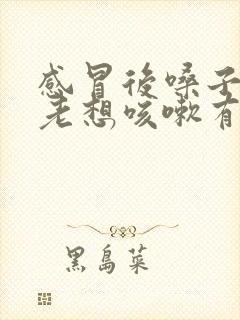 感冒後嗓子
老想咳嗽有
黑島菜